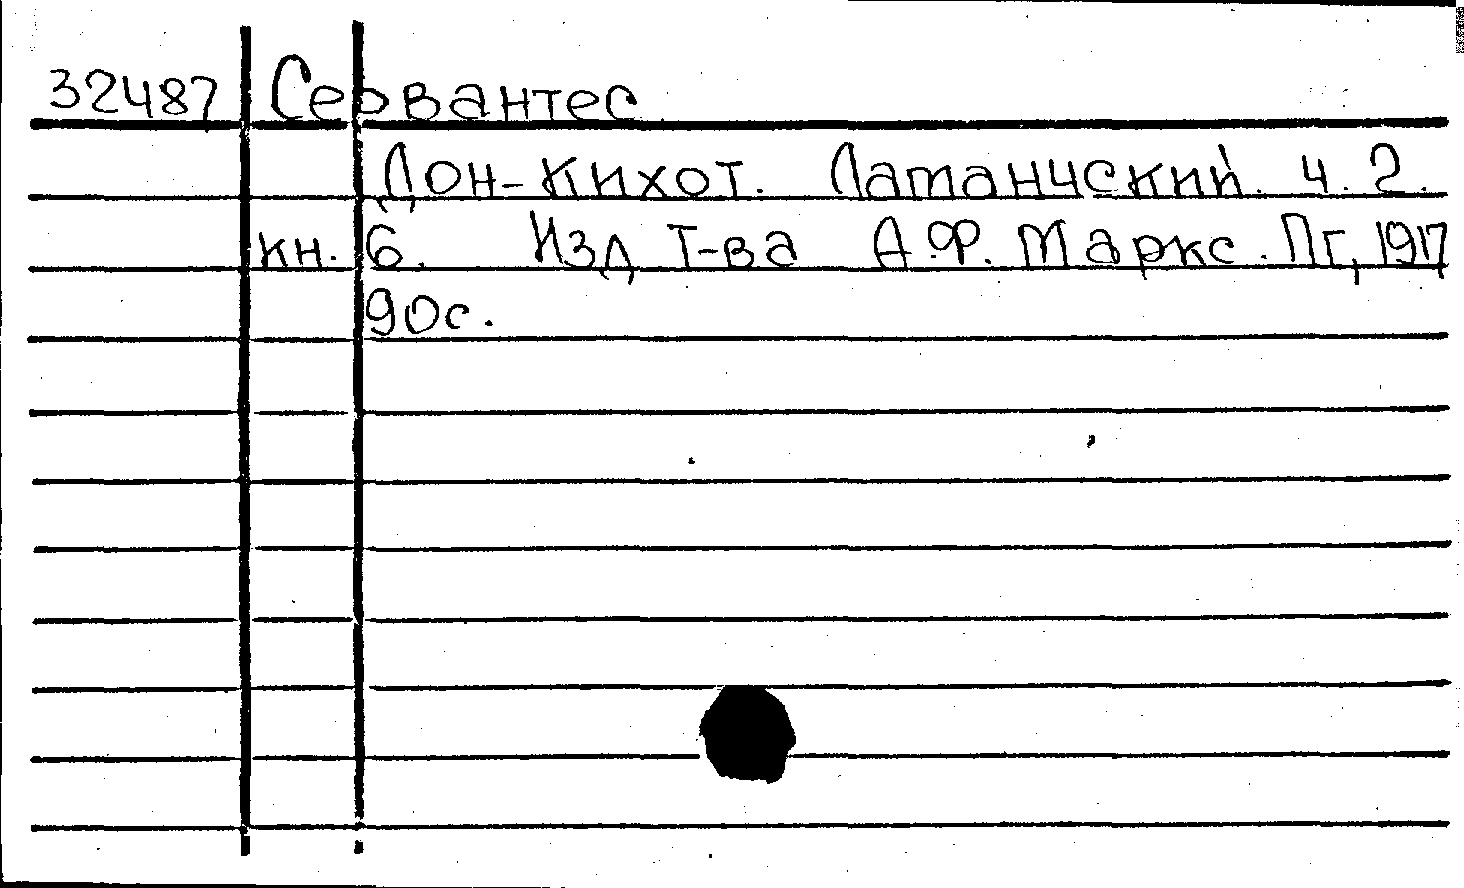 32487 Сервантес
Дон-Кихот. Ламанчский. ч. 2.
кн. 6. Изд Т-ва А.Ф. Маркс. Пг, 1917
90с.